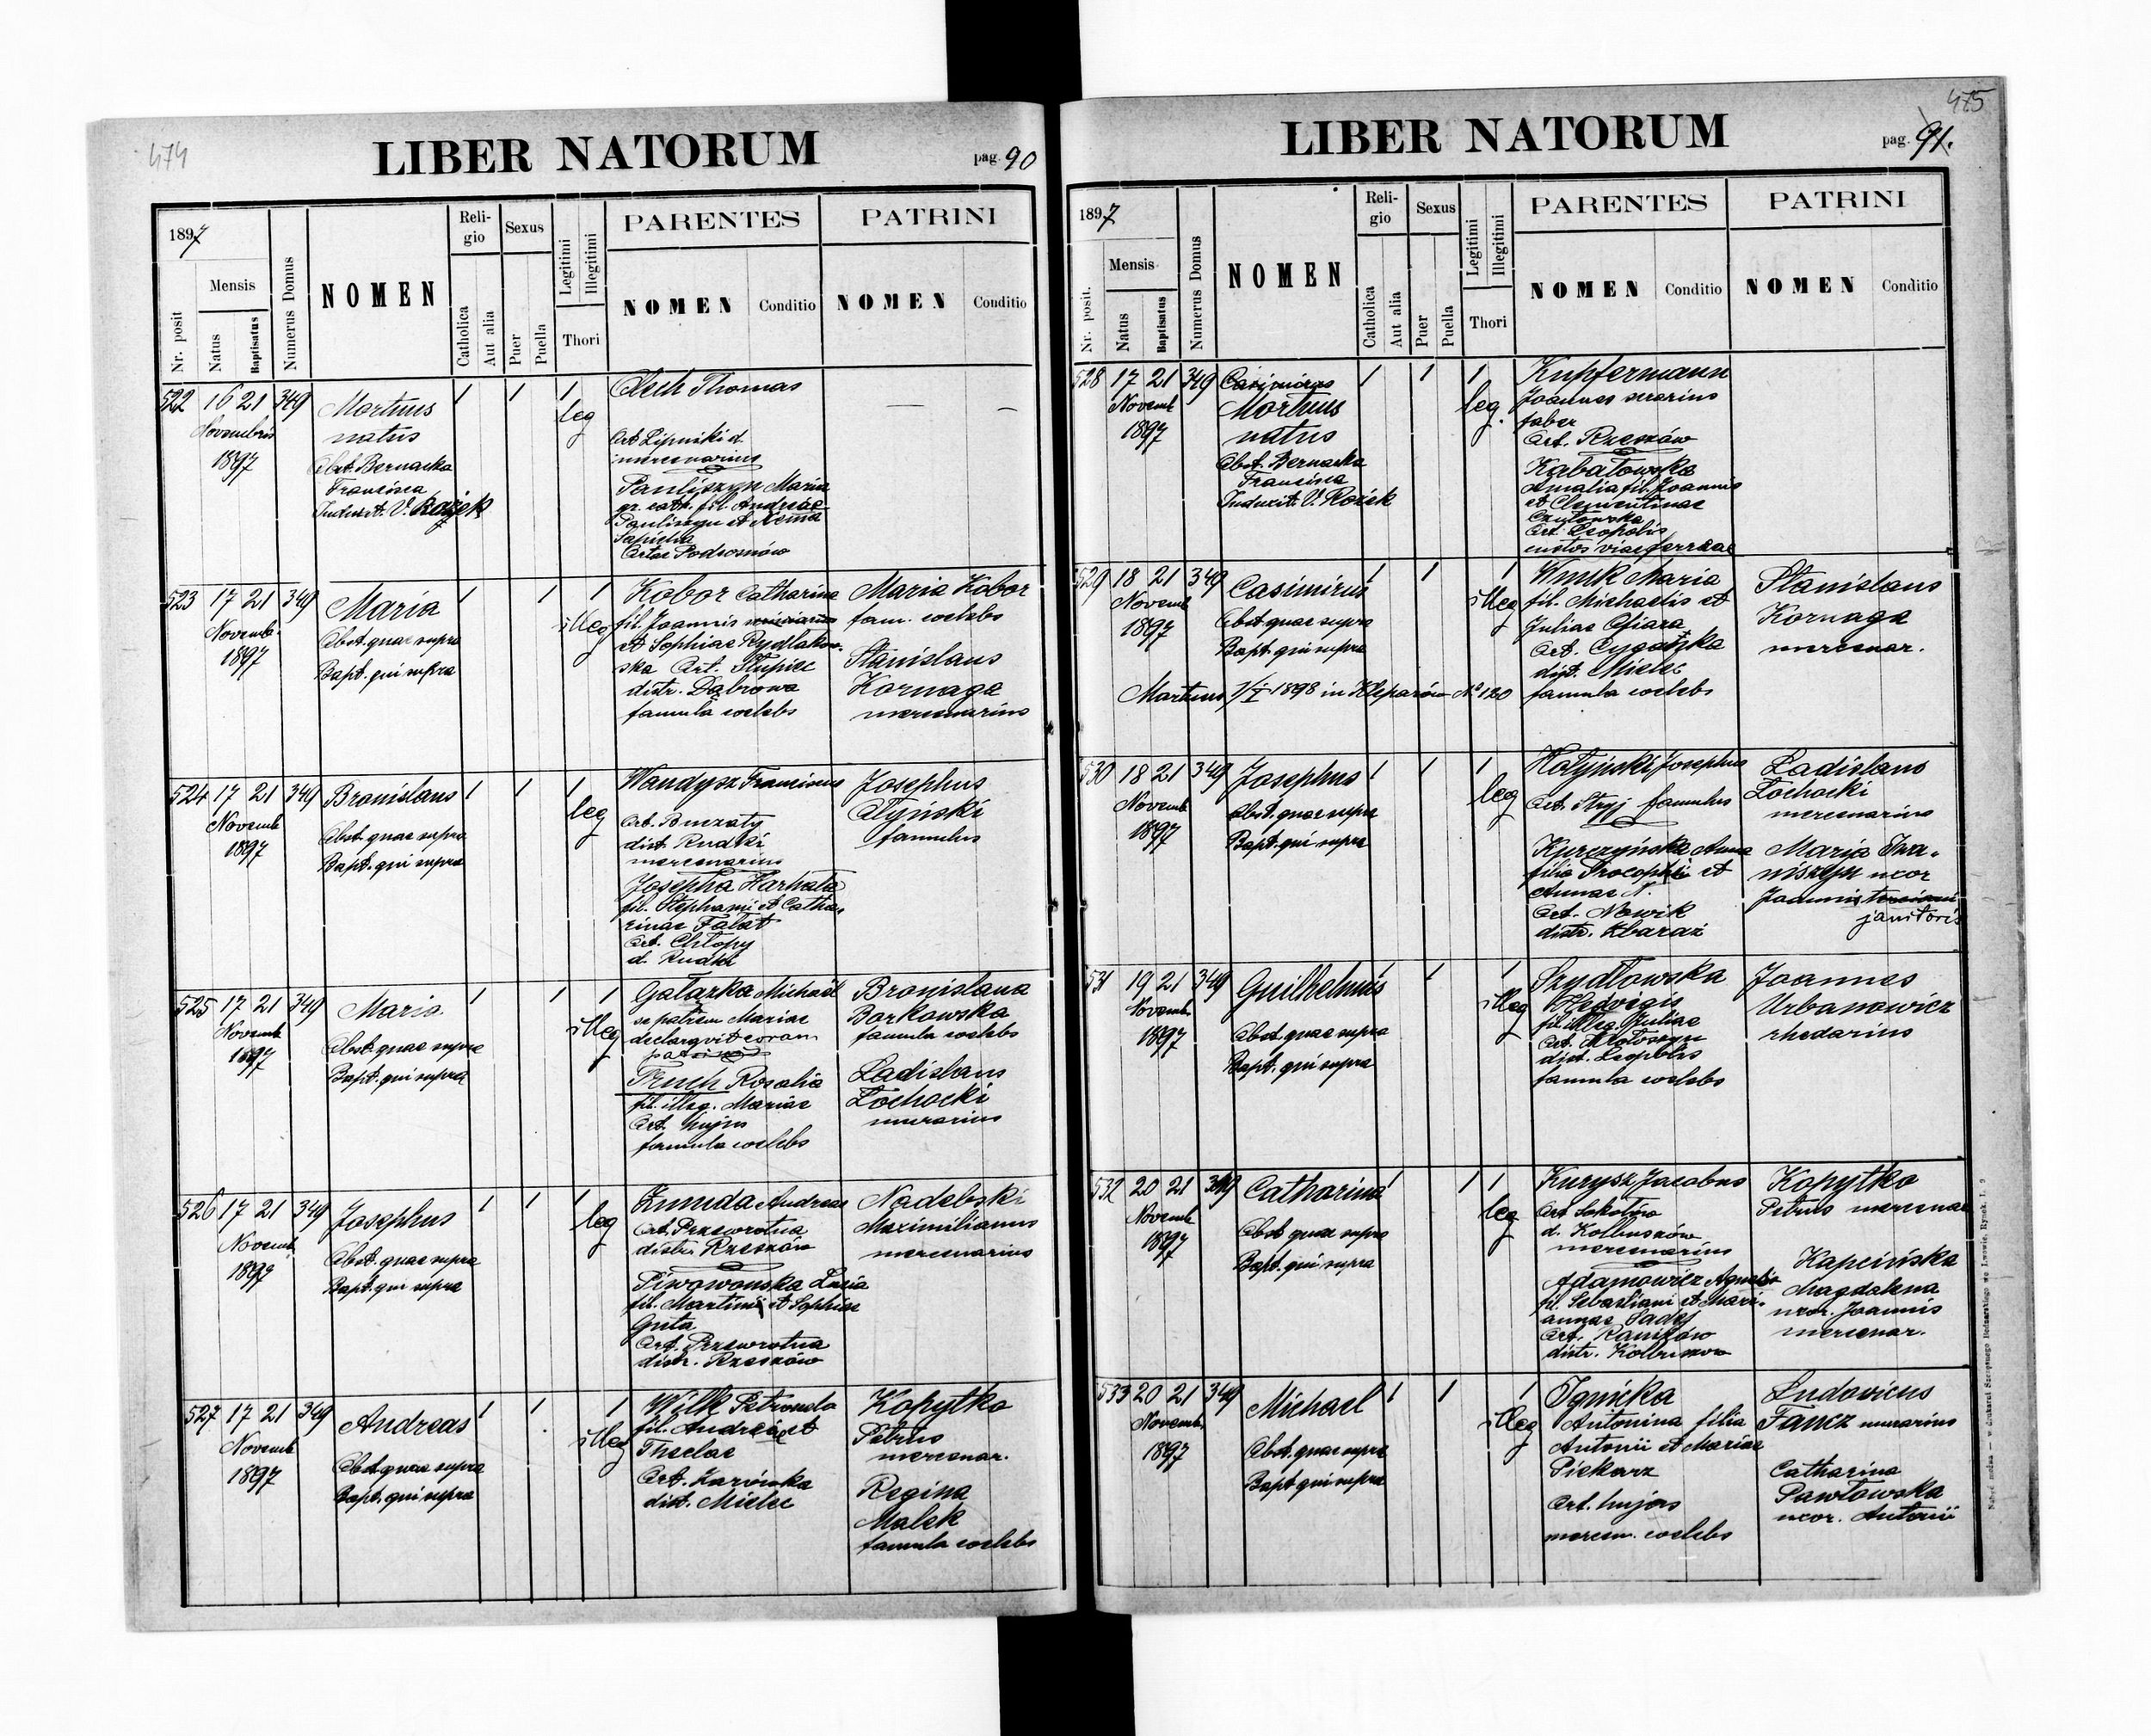 474
LIBER NATORUM
pag. 90
1897
Nr. posit
Mensis
Natus
Baptisatus
Numerus Domus
NOMEN
Religio
Catholica
Aut alia
Sexus
Puer
Puella
Legitimi
Illegitimi
Thori
PARENTES
NOMEN
Conditio
PATRINI
NOMEN
Conditio
522 16 21 349
Novembris
1897
Mortuus
natus
Obst. Bernacka
Francisca
Induxit V. Rożek
1 1 1
leg
Thomas
mercenarius
Pauliszyn Maria
gr. cath. fil. Andreae
Pauliszyn et
Sapieha
523 17 21 349
Novemb.
1897
Maria
Obst. quae supra
Bapt. qui supra
1 1 1
illeg
Kobor Catharina
fil. Joannis
et Sophiae Rydlakow-
ska Ort. Słupiec
distr. Dąbrowa
famula coelebs
Maria Kobor
fam. coelebs
Stanislaus
Kornaga
mercenarius
524 17 21 349
Novemb
1897
Bronislaus
Obst. quae supra
Bapt. qui supra
1 1 1
leg
Wandysz Franciscus
dist. Rudki
mercenarius
Josepha Harhala
fil. Stephani et Catha-
rinae Falat
Ort. Chłopy
d. Rudki
Josephus
famulus
525 17 21 349
Novemb
1897
Maria
Obst. quae supra
Bapt. qui supra
1 1 1
illeg
Gałązka Michaël
se patrem Mariae
declaravit coram
Rosalia
fil. illeg. Mariae
Ort. hujus
famula coelebs
Bronislava
Borkowska
famula coelebs
Ladislaus
Łochocki
murarius
526 17 21 349
Novemb
1897
Josephus
Obst. quae supra
Bapt. qui supra
1 1 1
leg
Żmuda Andreas
Ort. Przewrotna
distr. Rzeszów
Lucia
fil. Martini et Sophiae
Guta
Ort. Przewrotna
distr. Rzeszów
Nadebski
Maximilianus
mercenarius
527 17 21 349
Novemb
1897
Andreas
Obst. quae supra
Bapt. qui supra
1 1 1
illeg
Wilk Petronela
fil. Andreae et
Theclae
dist. Mielec
Kopytko
Petrus
mercenar.
Regina
Malek
famula coelebs
475
LIBER NATORUM
pag. 91.
1897
Nr. posit.
Mensis
Natus
Baptisatus
Numerus Domus
NOMEN
Religio
Catholica
Aut alia
Sexus
Puer
Puella
Legitimi
Illegitimi
Thori
PARENTES
NOMEN
Conditio
PATRINI
NOMEN
Conditio
528 17 21 349
Novemb
1897
Casimirus
Mortuus
natus
Obst. Bernacka
Francisca
Induxit V. Rożek
1 1 1
leg.
Kupfermann
Joannes
faber
Ort. Rzeszów
Kabatowska
Amalia fil. Joannis
et Clementinae
Ort. Leopolis
custos viae ferreae
529 18 21 349
Novemb
1897
Casimirus
Obst. quae supra
Bapt. qui supra
Mortuus 7/I 1898 in Kleparów No 120
1 1 1
illeg
Maria
fil. Michaelis et
Juliae
dist. Mielec
famula coelebs
Stanislaus
Kornaga
mercenar.
530 18 21 349
Novemb
1897
Josephus
Obst. quae supra
Bapt. qui supra
1 1 1
leg
Hołyński Josephus
Ort. Stryj famulus
Kurczyńska Anna
filia Procopii et
Annae N.
Ort. Nowik
distr. Zbaraż
Ladislaus
Łochocki
mercenarius
Maria Iwa-
niszyn uxor
Joannis
janitoris
531 19 21 349
Novemb.
1897
Guilhelmus
Obst. quae supra
Bapt. qui supra
1 1 1
illeg
Szydłowska
Hedvigis
fil. illeg. Juliae
dist. Leopolis
famula coelebs
Joannes
Urbanowicz
rhedarius
532 20 21 349
Novemb
1897
Catharina
Obst. quae supra
Bapt. qui supra
1 1 1
leg
Kurysz Jacobus
Ort. Sokołów
d. Kolbuszów
mercenarius
Adamowicz
fil. Sebastiani et Mari-
annae Sady
Ort. Raniżów
distr. Kolbuszow
Kopytko
Petrus mercenar
Kapcińska
Magdalena
uxor. Joannis
mercenar.
533 20 21 349
Novemb.
1897
Michael
Obst. quae supra
Bapt. qui supra
1 1 1
illeg
Antonina filia
Antonii et Mariae
Piekarz
Ort. hujus
mercen. coelebs
Ludovicus
murarius
Catharina
Pawłowska
uxor. Antonii